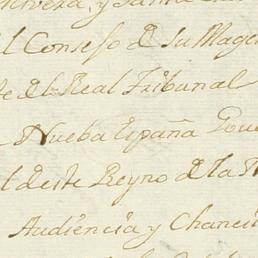 y
el Consejo de Su Mage
te del Real Tribunal
Nueba España Gou
l deste Reyno de la
Audiencia y Chanci